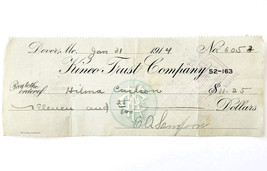 Dover, Me. Jan 31 1914 No. 6052
Kineo Trust Company 52-163
Pay to the order of Hilma Carlson $11.25
Eleven and 25/100 Dollars